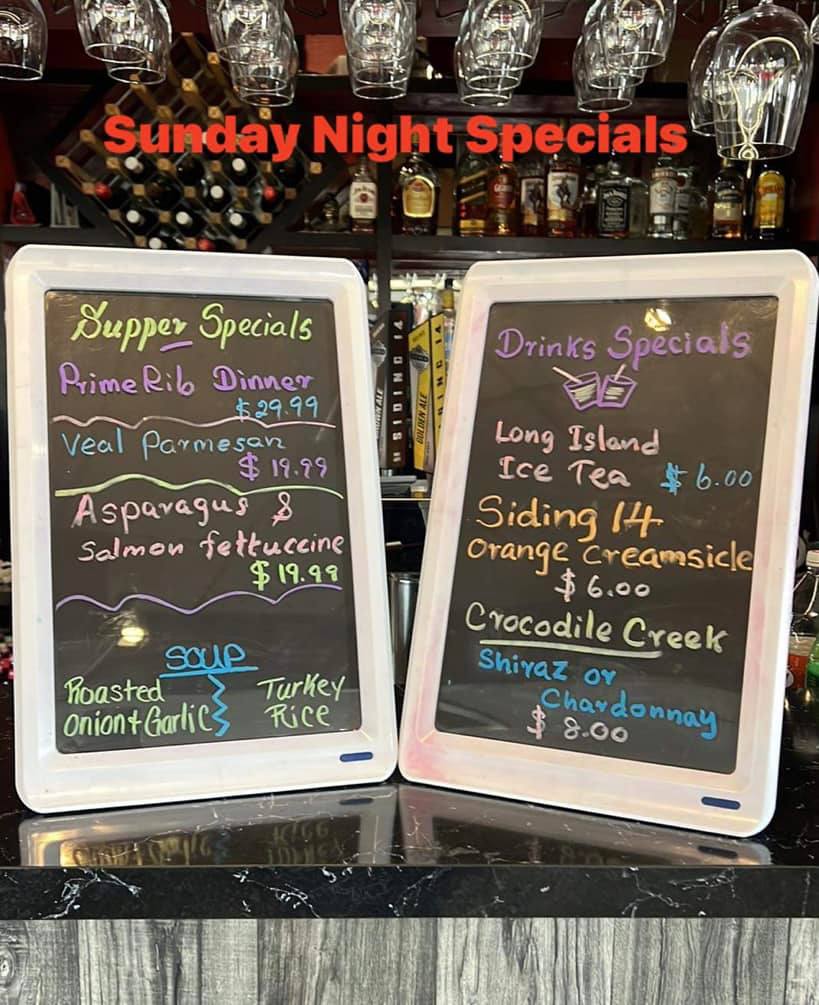 Sunday Night Specials
Supper Specials
Prime Rib Dinner
$29.99
Veal Parmesan
$19.99
Asparagus &
Salmon fettuccine
$19.99
SOUP
Roasted
Onion + Garlic
Turkey
Rice
Drinks Specials
Long Island
Ice Tea $6.00
Siding 14
Orange Creamsicle
$6.00
Crocodile Creek
Shiraz or
Chardonnay
$8.00
SIDING 14
GOLDEN ALE